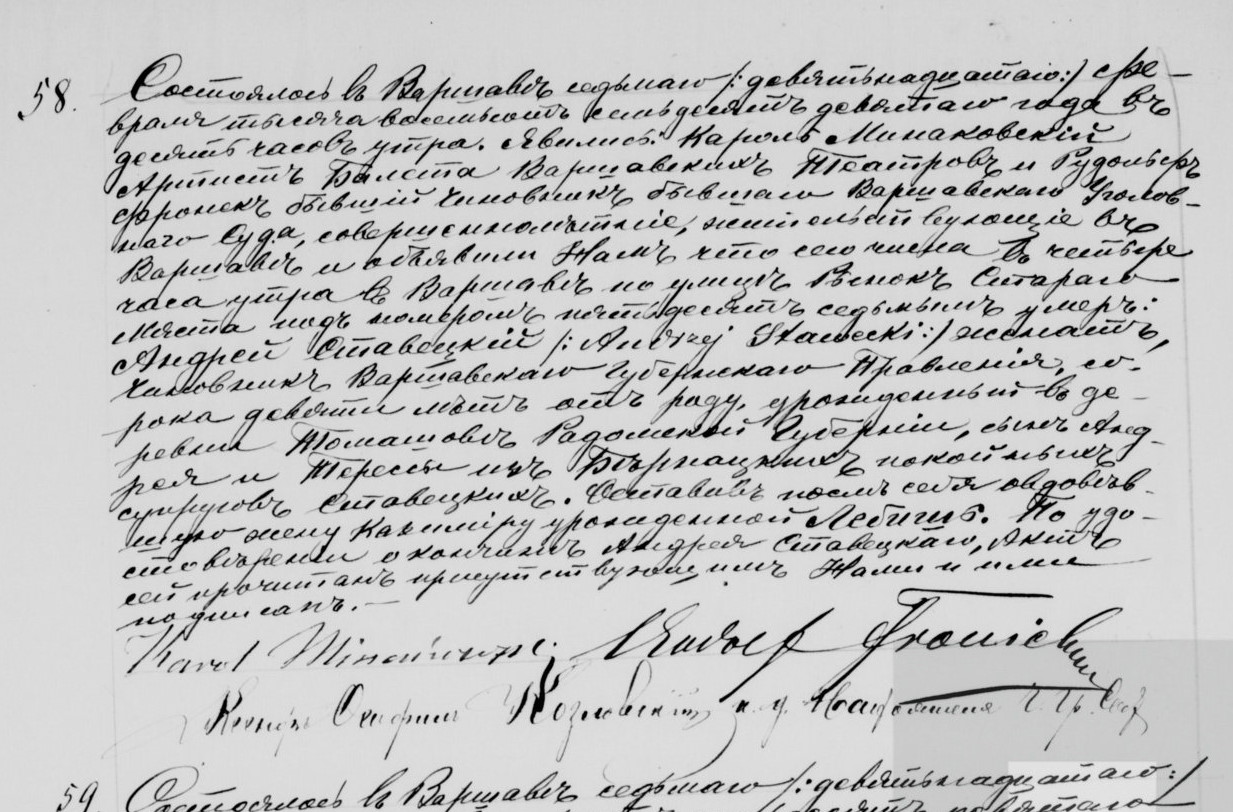 58. Состоялось въ Варшавѣ седьмаго /:девятьнадцатаго:/ Фе-
враля тысяча восемьсотъ семьдесятъ девятаго года въ
десять часовъ утра. Явились: Кароль Минаковскій
Артистъ Балета Варшавскихъ Театровъ и Рудольфъ
Фронекъ бывшій Чиновникъ бывшаго Варшавскаго Уголов-
наго Суда, совершеннолѣтніе, жительствующіе въ
Варшавѣ и объявили Намъ что сего числа въ четыре
часа утра въ Варшавѣ по улицѣ Рынокъ Стараго
Мяста подъ номеромъ пятьдесятъ седьмымъ умеръ:
Андрей Ставецкій /:Andrzej Stawecki:/ женатъ,
Чиновникъ Варшавскаго Губернскаго Правленія, со-
рока девяти лѣтъ отъ роду, урожденный въ де-
ревни Томашовѣ Радомской Губерніи, сынъ Анд-
рея и Тересы изъ Бѣрнацкихъ покойныхъ
супруговъ Ставецкихъ. Оставивъ послѣ себя овдовѣв-
шую жену Казиміру урожденной Лебигтъ. По удо-
стовѣреніи о кончинѣ Андрея Ставецкаго, Актъ
сей прочитанъ присутствующимъ Нами и ими
подписанъ.—
Karol Rudolf
Ксендзъ Козловскій и. д.
59. Состоялось въ Варшавѣ седьмаго /:девятьнадцатаго:/